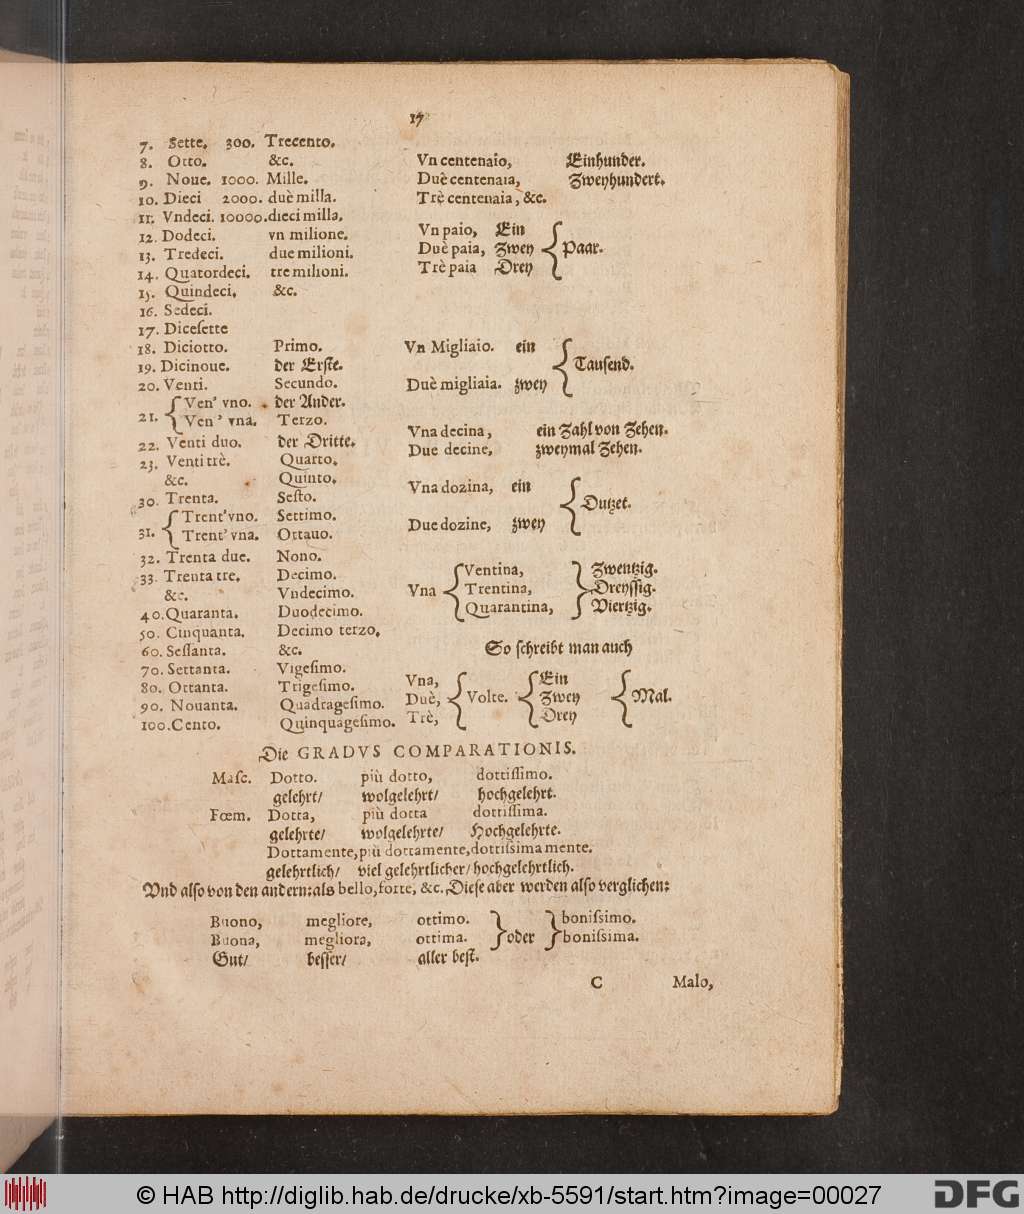 17
7. Sette. 300. Trecento.
8. Otto. &c.
9. Noue. 1000. Mille.
10. Dieci 2000. duè milla.
11. Vndeci. 10000. dieci milla.
12. Dodeci. vn milione.
13. Tredeci. due milioni.
14. Quatordeci. tre milioni.
15. Quindeci. &c.
16. Sedeci.
17. Diceſette
18. Diciotto. Primo.
19. Dicinoue. der Erſte.
20. Venti. Secundo.
21. { Ven' vno. der Ander.
Ven' vna. Terzo.
22. Venti duo. der Dritte.
23. Venti trè. Quarto.
&c. Quinto.
30. Trenta. Seſto.
31. { Trent'vno. Settimo.
Trent' vna. Ottauo.
32. Trenta due. Nono.
33. Trenta tre. Decimo.
&c. Vndecimo.
40. Quaranta. Duodecimo.
50. Cinquanta. Decimo terzo.
60. Seſſanta. &c.
70. Settanta. Vigeſimo.
80. Ottanta. Trigeſimo.
90. Nouanta. Quadrageſimo.
100. Cento. Quinquageſimo.
Vn centenaio, Einhunder.
Duè centenaia, Zweyhundert.
Trè centenaia, &c.
Vn paio, Ein
Duè paia, Zwey { Paar.
Trè paia Drey
Vn Migliaio. ein
{ Tauſend.
Duè migliaia. zwey
Vna decina, ein Zahl von Zehen.
Due decine, zweymal Zehen.
Vna dozina, ein
{ Dutzet.
Due dozine, zwey
Ventina, } Zwentzig.
Vna { Trentina, Dreyſſig.
Quarantina, Viertzig.
So ſchreibt man auch
Vna, Ein
Duè, { Volte. { Zwey { Mal.
Trè, Drey
Die GRADVS COMPARATIONIS.
Maſc. Dotto. più dotto, dottiſſimo.
gelehrt/ wolgelehrt/ hochgelehrt.
Fœm. Dotta, più dotta dottiſſima.
gelehrte/ wolgelehrte/ Hochgelehrte.
Dottamente, più dottamente, dottiſsima mente.
gelehrtlich/ viel gelehrtlicher/ hochgelehrtlich.
Vnd alſo von den andern: als bello, forte, &c. Dieſe aber werden alſo verglichen:
Buono, megliore, ottimo. } boniſsimo.
Buona, megliora, ottima. oder } boniſsima.
Gut/ beſſer/ aller beſt.
C Malo,
© HAB http://diglib.hab.de/drucke/xb-5591/start.htm?image=00027
DFG